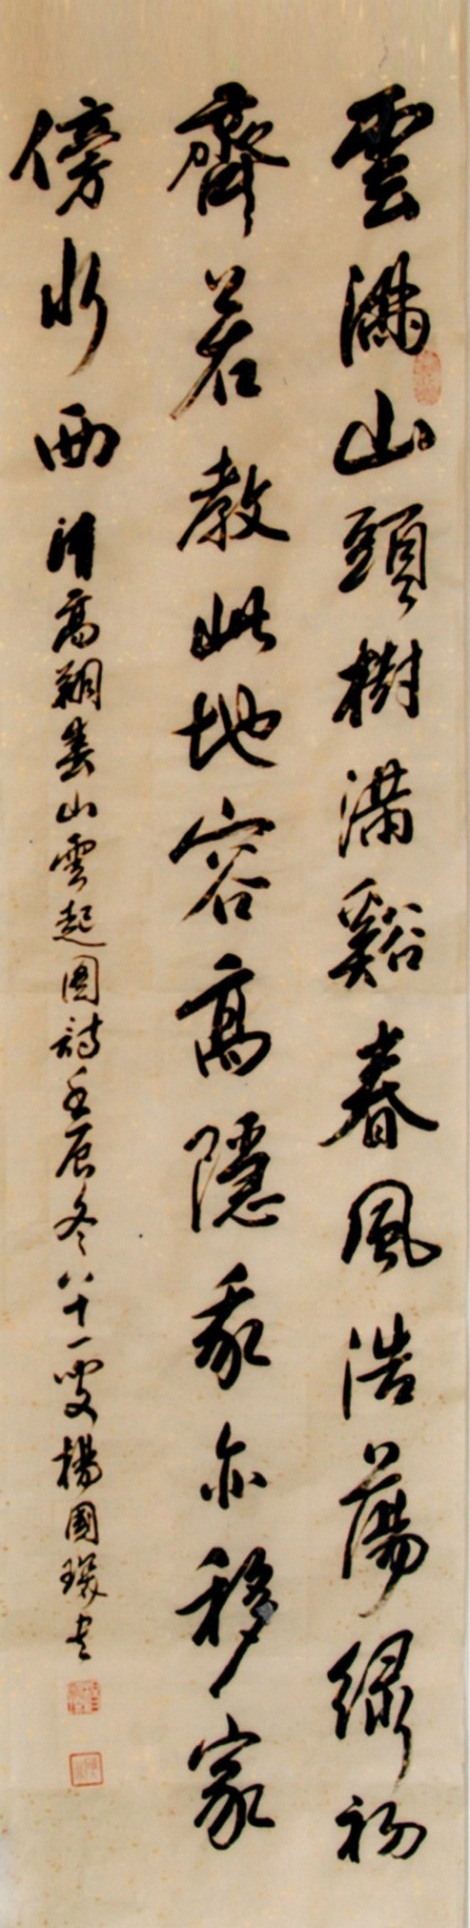 雲滿山頭樹滿谿春風浩蕩綠初
齊若教此地容高隱我亦移家
傍水西 清高翔春山雲起圖詩壬辰冬八十一叟楊國璨書